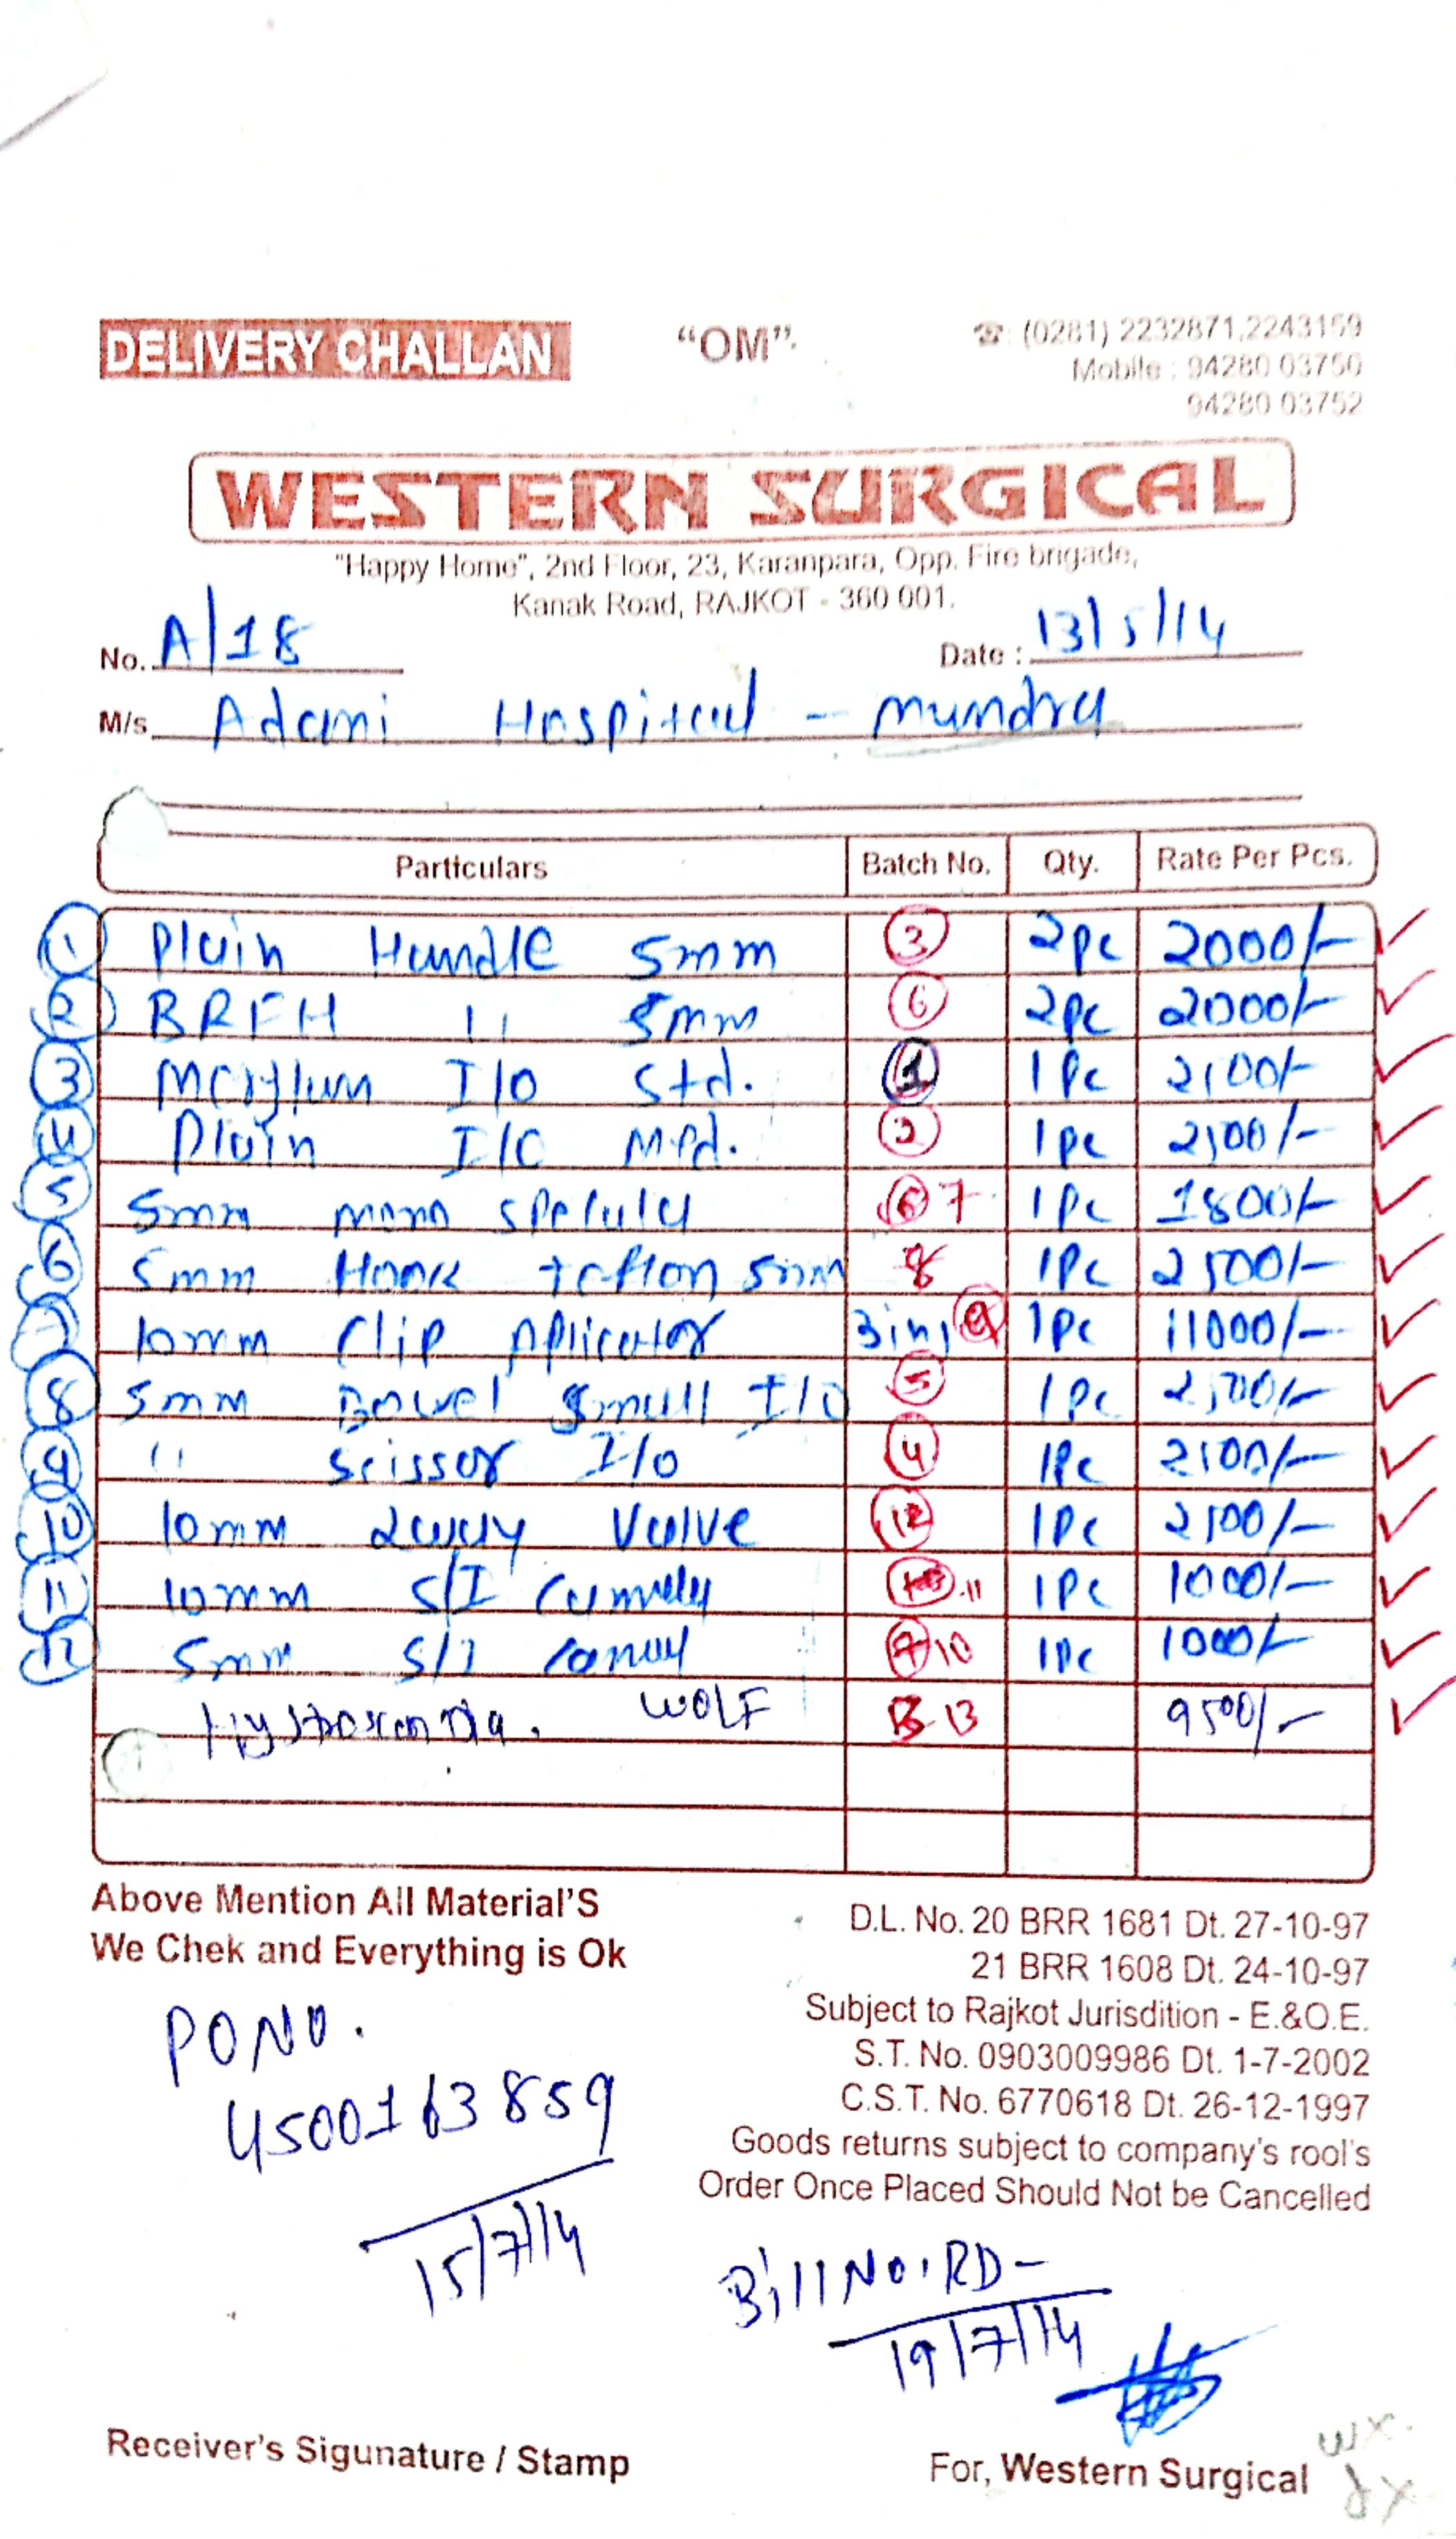 DELIVERY CHALLAN "OM". ☎ : (0281) 2232871,2243159
Mobile : 94280 03750
94280 03752
WESTERN SURGICAL
"Happy Home", 2nd Floor, 23, Karanpara, Opp. Fire brigade,
Kanak Road, RAJKOT - 360 001.
No. A/18 Date : 13/5/14
M/s. Adani Hospital - mundra
Particulars Batch No. Qty. Rate Per Pcs.
1 Plain Handle 5mm 3 2pc 2000/-
2 BRFH 11 5mm 6 2pc 2000/-
3 I/O Std. 1 1Pc 2100/-
4 Plain I/O 2 1pc 2100/-
5 5mm mono 7 1Pc 1800/-
6 5mm Hook teflon 5mm 8 1Pc 2500/-
7 10mm Clip Aplicator 3in1 9 1Pc 11000/-
8 5mm Bowel Small I/O 5 1Pc
9 11 Scissor I/O 4 1Pc 2100/-
10 10mm 2way Valve 12 1Pc 2100/-
11 10mm S/I 11 1Pc 1000/-
12 5mm S/I 10 1Pc 1000/-
WOLF 13 9500/-
Above Mention All Material'S
We Chek and Everything is Ok
D.L. No. 20 BRR 1681 Dt. 27-10-97
21 BRR 1608 Dt. 24-10-97
Subject to Rajkot Jurisdition - E.&O.E.
S.T. No. 0903009986 Dt. 1-7-2002
C.S.T. No. 6770618 Dt. 26-12-1997
Goods returns subject to company's rool's
Order Once Placed Should Not be Cancelled
PONO.
4500163859
15/7/14
Bill No. RD-
19/7/14
Receiver's Sigunature / Stamp For, Western Surgical